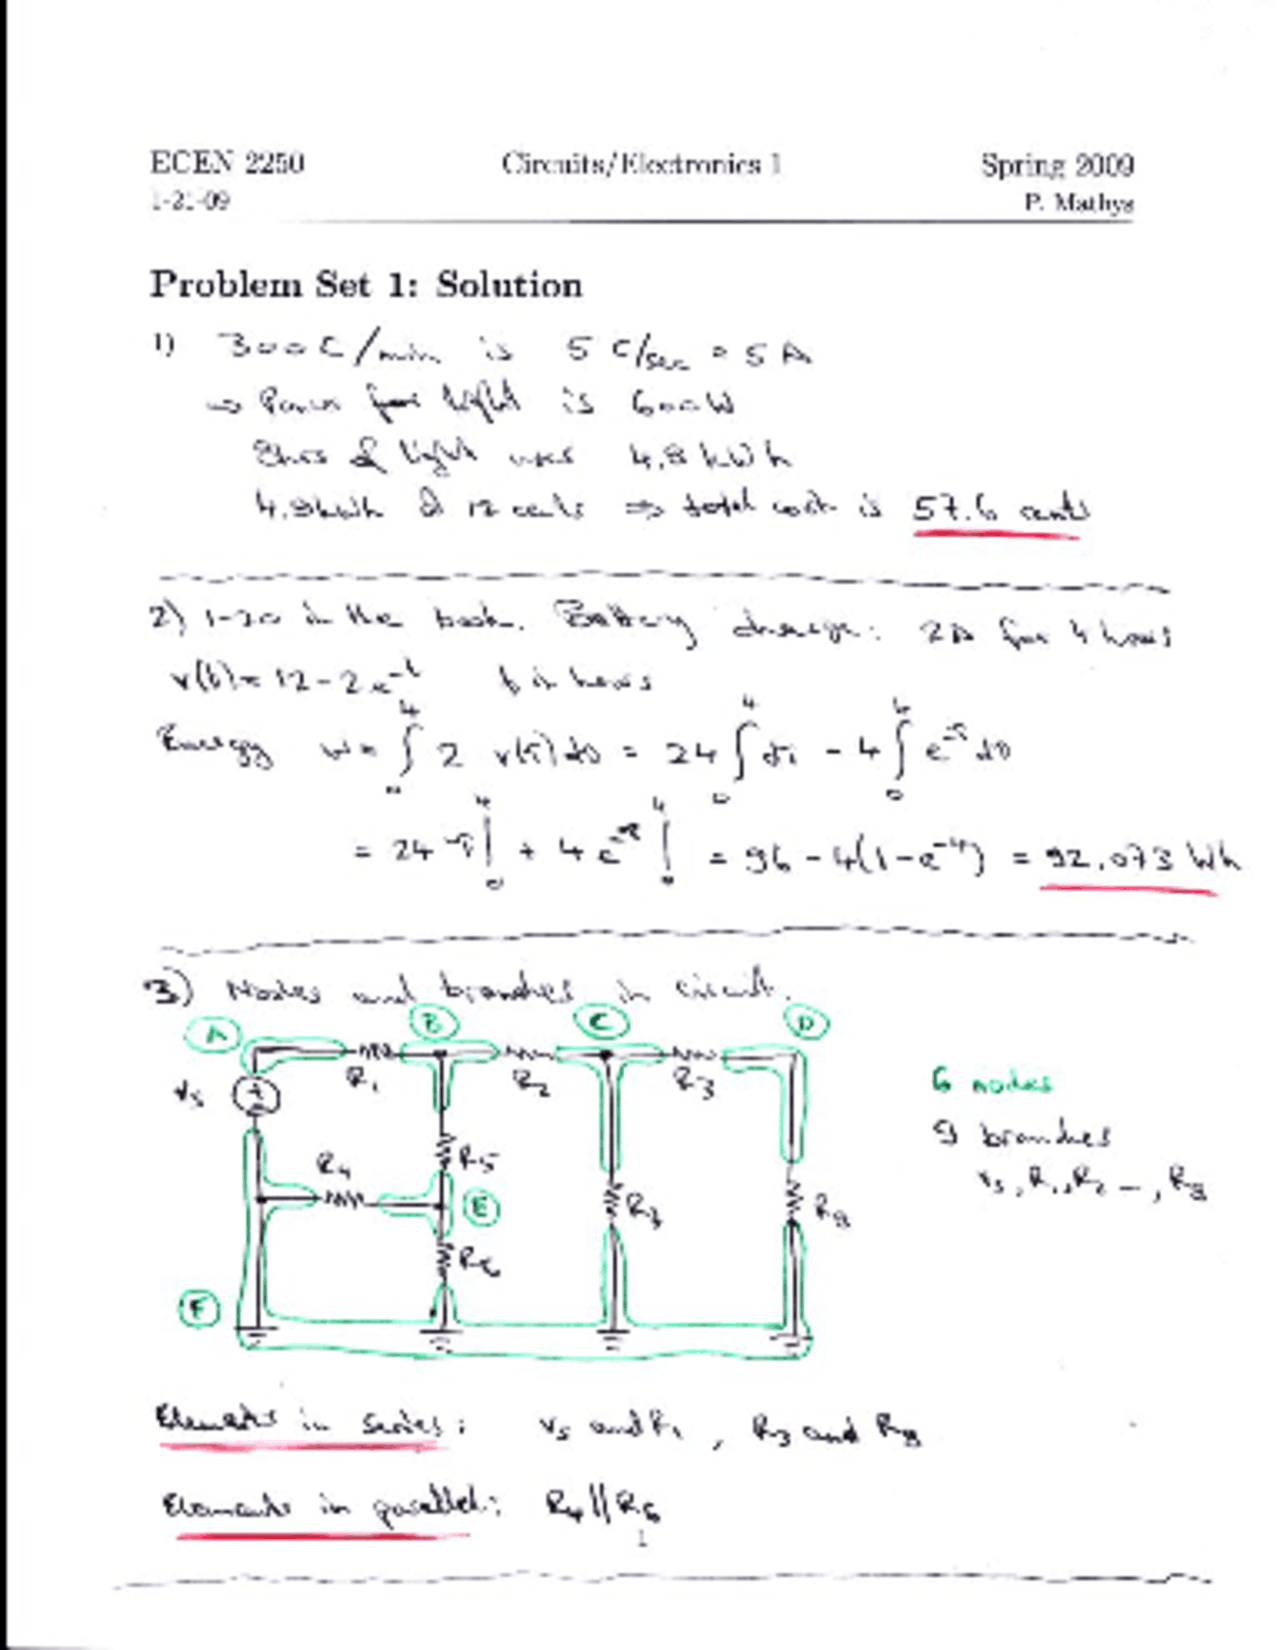 ECEN 2250 Circuits/Electronics 1 Spring 2009
1-21-09 P. Mathys
Problem Set 1: Solution
1) 300C/min is 5 C/sec = 5 A
⇒ Power for light is 600W
8hrs of light uses 4.8 kWh
4.8kWh @ 12 cents ⇒ total cost is 57.6 cents
2) 1-20 in the book. Battery charge: 2A for 4 hours
v(t) = 12 - 2e^-t t in hours
Energy w = ∫₀⁴ 2 v(τ)dτ = 24 ∫₀⁴ dτ - 4 ∫₀⁴ e^-τ dτ
= 24 τ|₀⁴ + 4 e^-τ|₀⁴ = 96 - 4(1-e^-4) = 92.073 Wh
3) Nodes and branches in circuit.
A B C D
R1 R2 R3
vs +
6 nodes
9 branches
vs, R1, R2 -, R8
R4 R5
E R7 R8
R6
F
Elements in series: vs and R1, R3 and R8
Elements in parallel: R4||R6
1